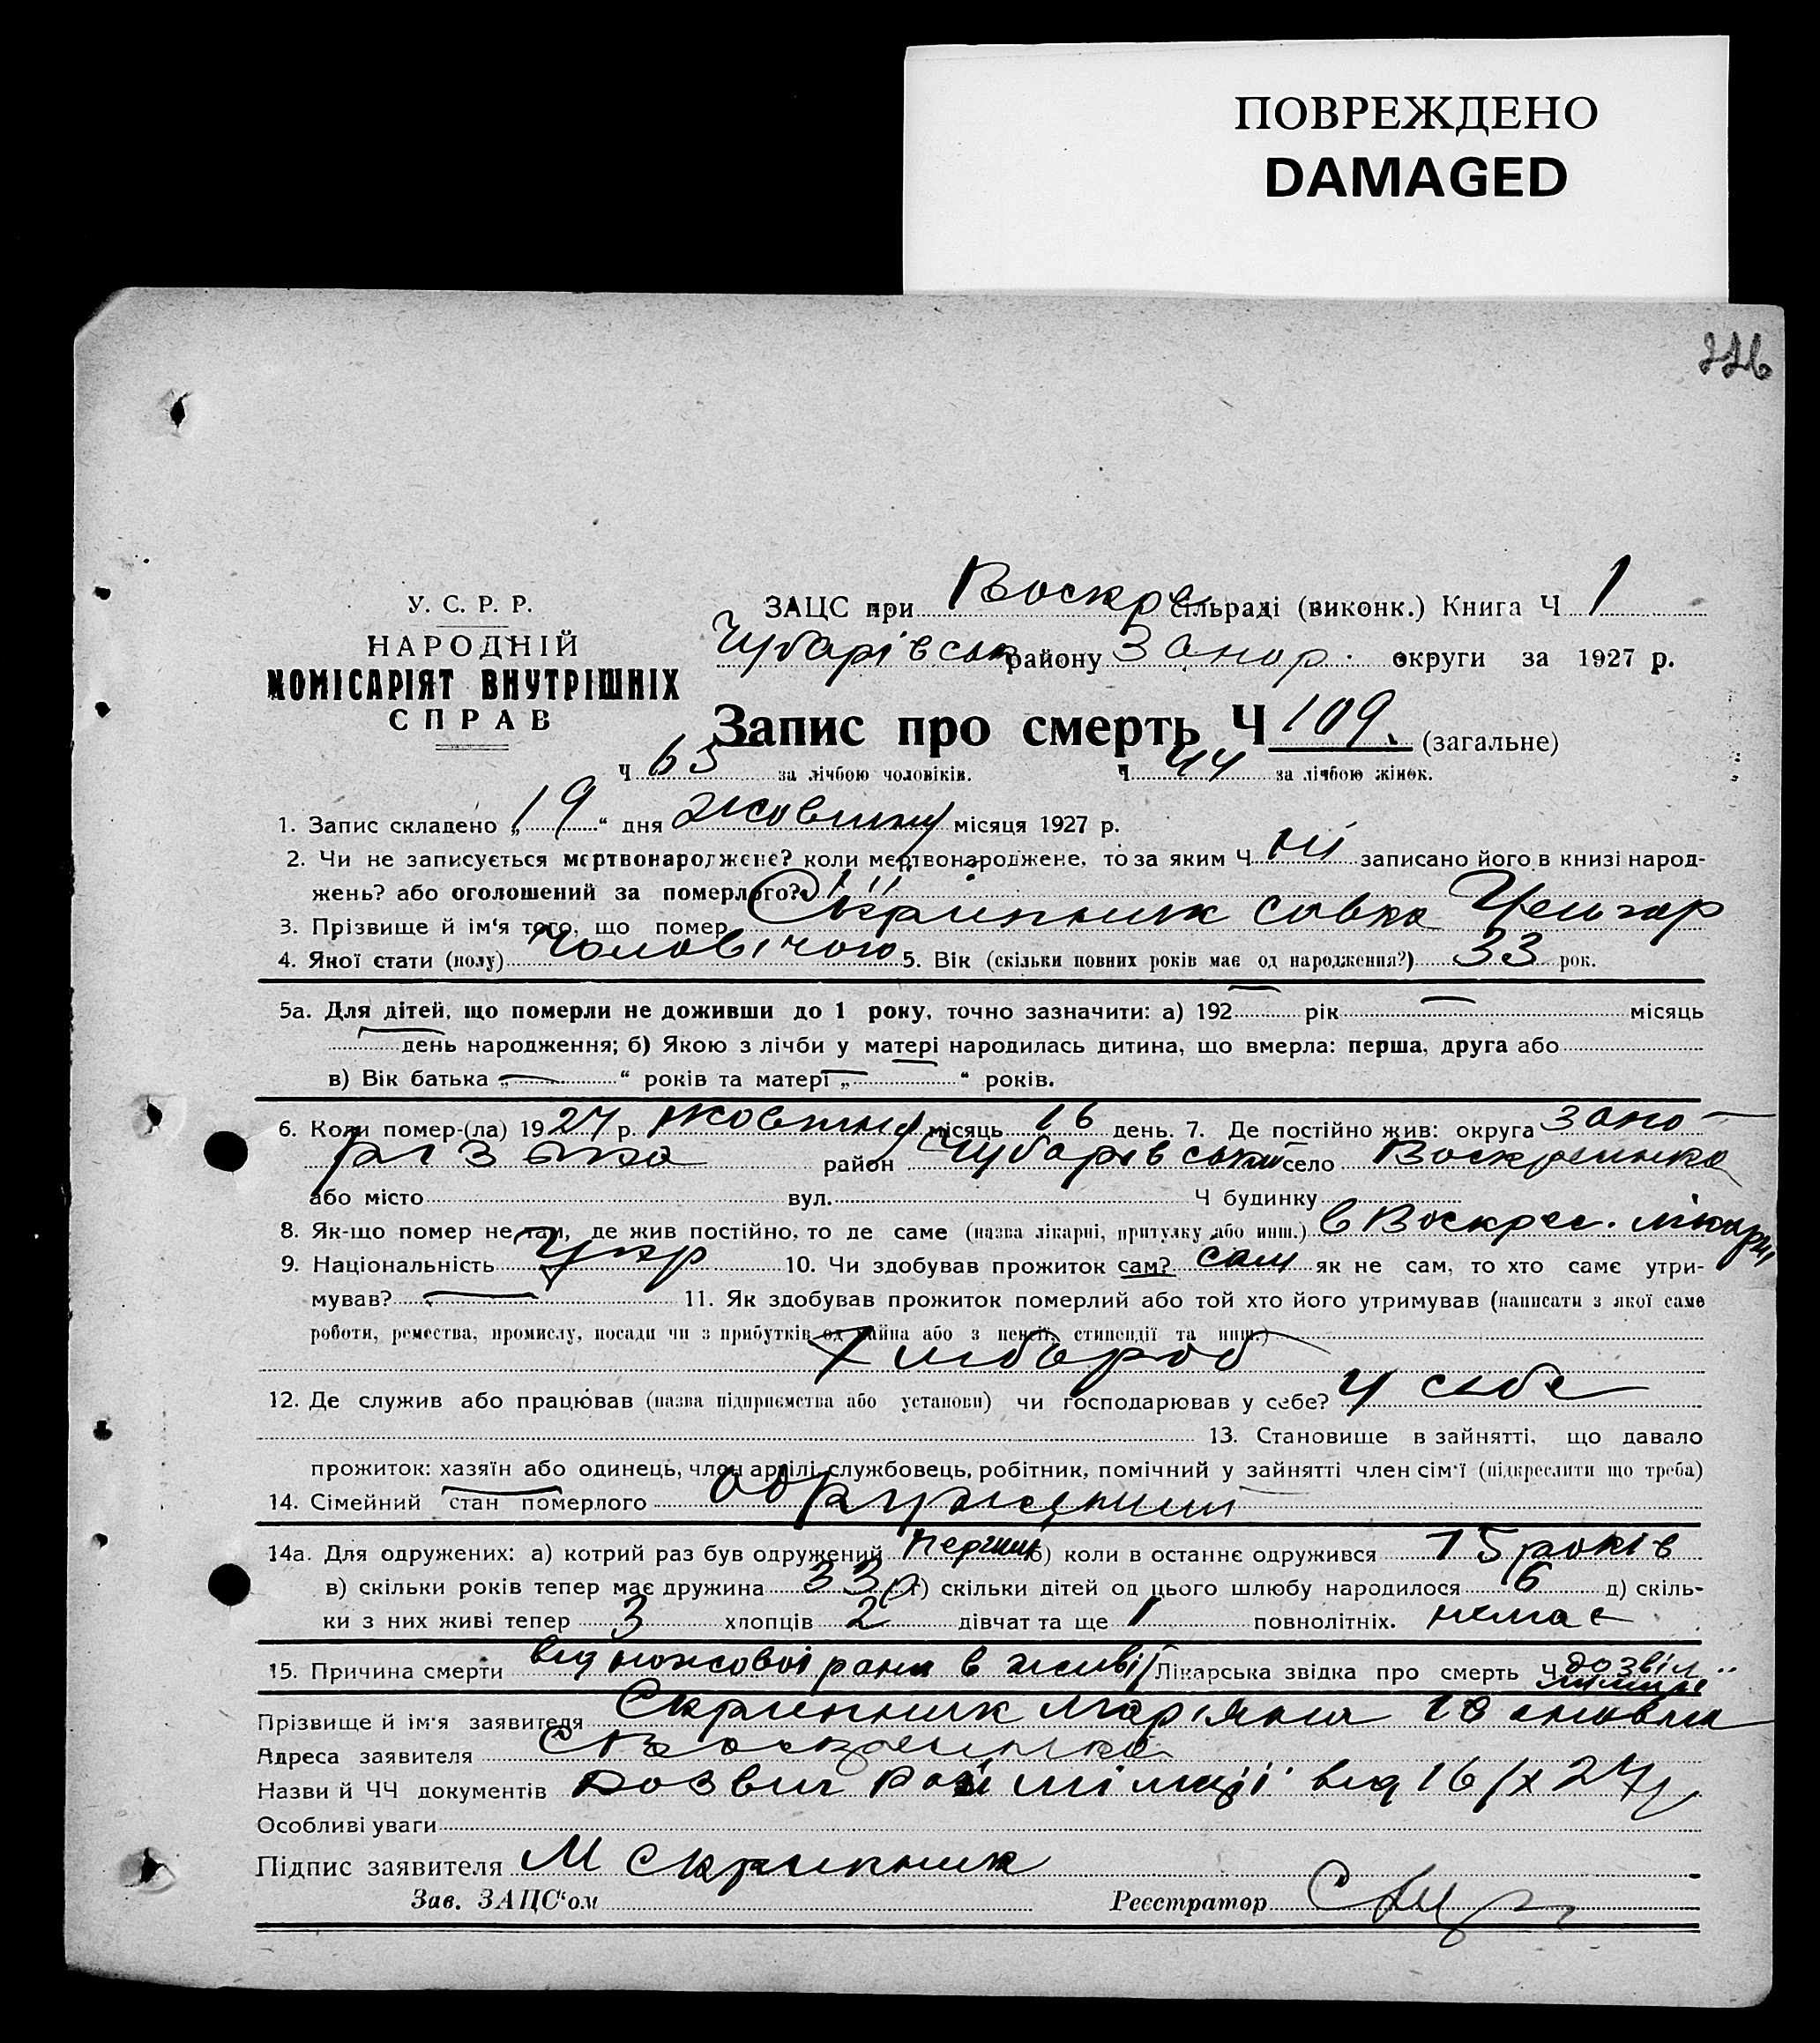 ПОВРЕЖДЕНО
DAMAGED
226
У. С. Р. Р.
НАРОДНІЙ
КОМІСАРІЯТ ВНУТРІШНІХ
СПРАВ
ЗАЦС при Воскре сільраді (виконк.) Книга Ч 1
Чубарівськ району Запор. округи за 1927 р.
Запис про смерть Ч 109. (загальне)
Ч 65 за лічбою чоловіків. Ч 44 за лічбою жінок.
1. Запис складено „19“ дня жовтня місяця 1927 р.
2. Чи не записується мертвонароджене? коли мертвонароджене, то за яким Ч ні записано його в книзі народ-
жень? або оголошений за померлого?
3. Прізвище й ім'я того, що помер Скрипник Савка
4. Якої стати (полу) Чоловічого 5. Вік (скільки повних років має од народження?) 33 рок.
5а. Для дітей, що померли не доживши до 1 року, точно зазначити: а) 192 — рік — місяць
— день народження; б) Якою з лічби у матері народилась дитина, що вмерла: перша, друга або
в) Вік батька „—“ років та матері „—“ років.
6. Коли помер-(ла) 1927 р. жовтня місяць 16 день. 7. Де постійно жив: округа Запо-
різька район Чубарівський село Воскресинка
або місто вул. Ч будинку
8. Як-що помер не там, де жив постійно, то де саме (назва лікарні, притулку або инш.) в Воскрес. лікарні
9. Національність Укр 10. Чи здобував прожиток сам? сам як не сам, то хто саме утри-
мував? — 11. Як здобував прожиток померлий або той хто його утримував (написати з якої саме
роботи, ремества, промислу, посади чи з прибутків од майна або з пенсії, стипендії та инш.)
Хлібороб
12. Де служив або працював (назва підприємства або установи) чи господарював у себе? У себе
13. Становище в зайнятті, що давало
прожиток: хазяїн або одинець, член артілі, службовець, робітник, помічний у зайнятті член сім'ї (підкреслити що треба)
14. Сімейний стан померлого одружений
14а. Для одружених: а) котрий раз був одружений перший б) коли в останнє одружився 15 років
в) скільки років тепер має дружина 33 р г) скільки дітей од цього шлюбу народилося 6 д) скіль-
ки з них живі тепер 3 хлопців 2 дівчат та ще 1 повнолітніх. немає
15. Причина смерти від ножової рани в живіт Лікарська звідка про смерть Ч дозвіл
міліції
Прізвище й ім'я заявителя Скрипник Мар'яна
Адреса заявителя с Воскресинка
Назви й ЧЧ документів Дозвіл Рай міліції від 16/X 27 р
Особливі уваги
Підпис заявителя М Скрипник
Зав. ЗАЦС'ом Реєстратор